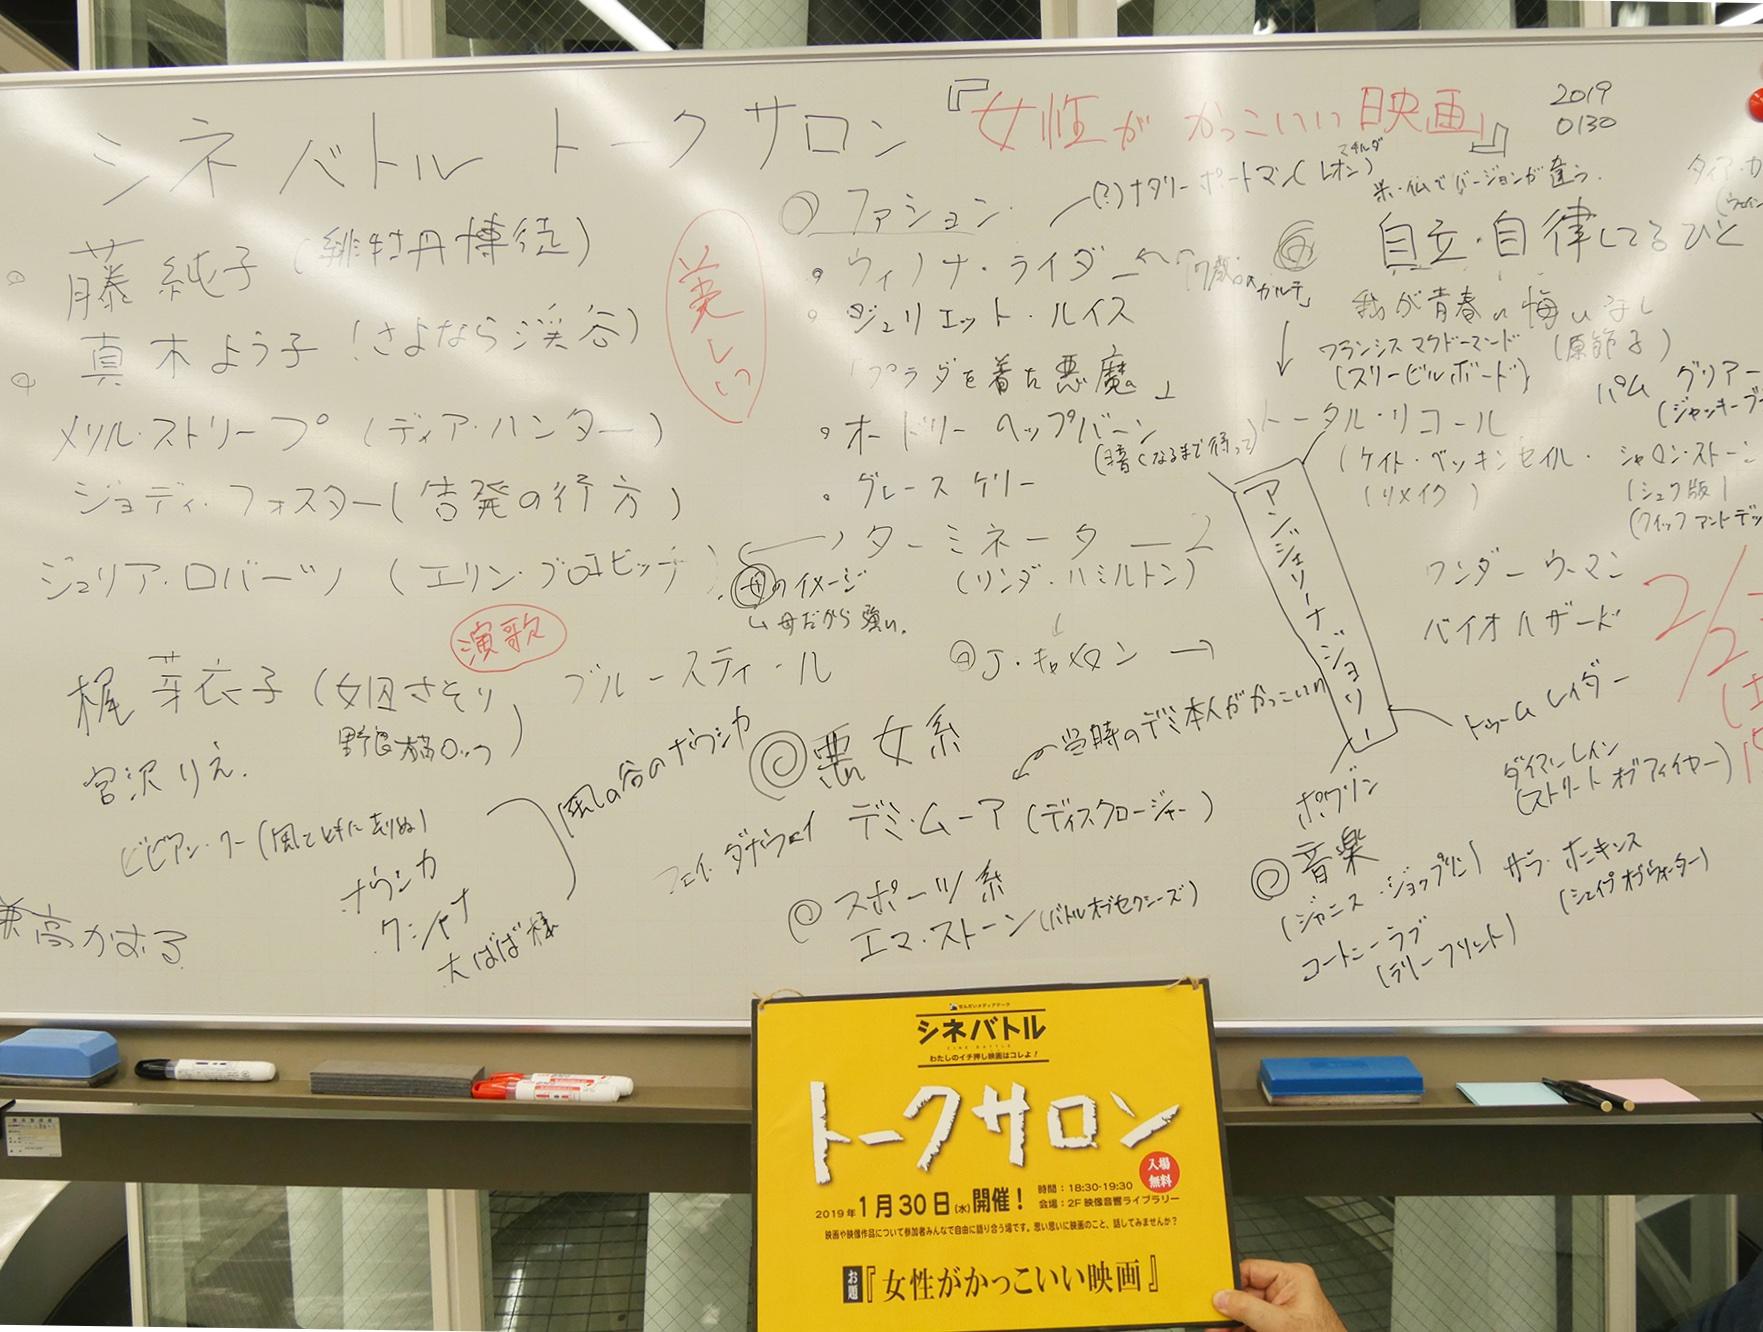 シネバトル トークサロン 『女性が かっこいい 映画』
2019
0130
藤 純子 (緋牡丹博徒)
真木よう子 (さよなら渓谷)
メリル・ストリープ (ディア・ハンター)
ジョディ・フォスター (告発の行方)
ジュリア・ロバーツ (エリン・ブロコビッチ)
美しい
演歌
梶 芽衣子 (女囚さそり
野良猫ロック)
宮沢りえ.
ビビアン・リー (風と共に去りぬ)
ナウシカ
クシャナ
大ばば様
風の谷のナウシカ
ブルースティール
◎ファッション
(?)ナタリー ポートマン (レオン)
マチルダ
米・仏でバージョンが違う.
ウィノナ・ライダー
ジュリエット・ルイス
「プラダを着た悪魔」
オードリー ヘップバーン
(暗くなるまで待って)
グレース ケリー
ターミネーター2
(リンダ・ハミルトン)
母のイメージ
母だから強い.
J・キャメロン →
◎悪女系
当時のデミ本人がかっこいい
デミ・ムーア (ディスクロージャー)
フェイ・ダナウェイ
◎スポーツ系
エマ・ストーン (バトルオブセクシーズ)
自立・自律してるひと
我が青春に悔いなし
(原節子)
フランシス マクドーマンド
(スリービルボード)
パム グリアー
トータル・リコール
(ケイト・ベッキンセイル・
(リメイク)
シャロン・ストーン
(シュワ版)
アンジェリーナ ジョリー
ワンダー ウーマン
バイオハザード
トゥーム レイダー
ダイアン レイン
(ストリート オブ ファイヤー)
◎音楽
(ジャニス・ジョップリン)
コートニー ラブ
(ラリー フリント)
サラ・ホーキンス
(シェイプ オブ ウォーター)
せんだいメディアテーク
シネバトル
CINE BATTLE
わたしのイチ押し映画はコレよ！
トークサロン
入場
無料
2019年1月30日(水)開催！
時間：18:30-19:30
会場：2F 映像音響ライブラリー
映画や映像作品について参加者みんなで自由に語り合う場です。思い思いに映画のこと、話してみませんか？
お題『女性がかっこいい映画』